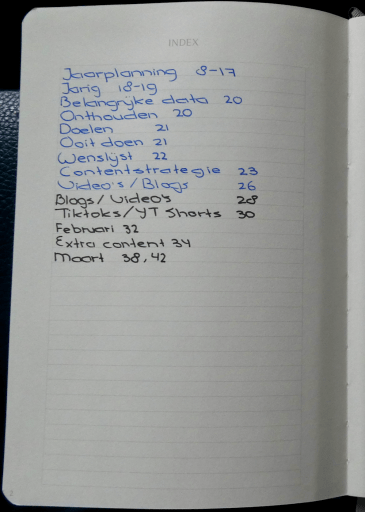 INDEX
Jaarplanning 8-17
Jarig 18-19
Belangrijke data 20
Onthouden 20
Doelen 21
Ooit doen 21
Wenslijst 22
Contentstrategie 23
Video's / Blogs 26
Blogs / Video's 28
Tiktoks/YT Shorts 30
Februari 32
Extra content 34
Maart 38, 42